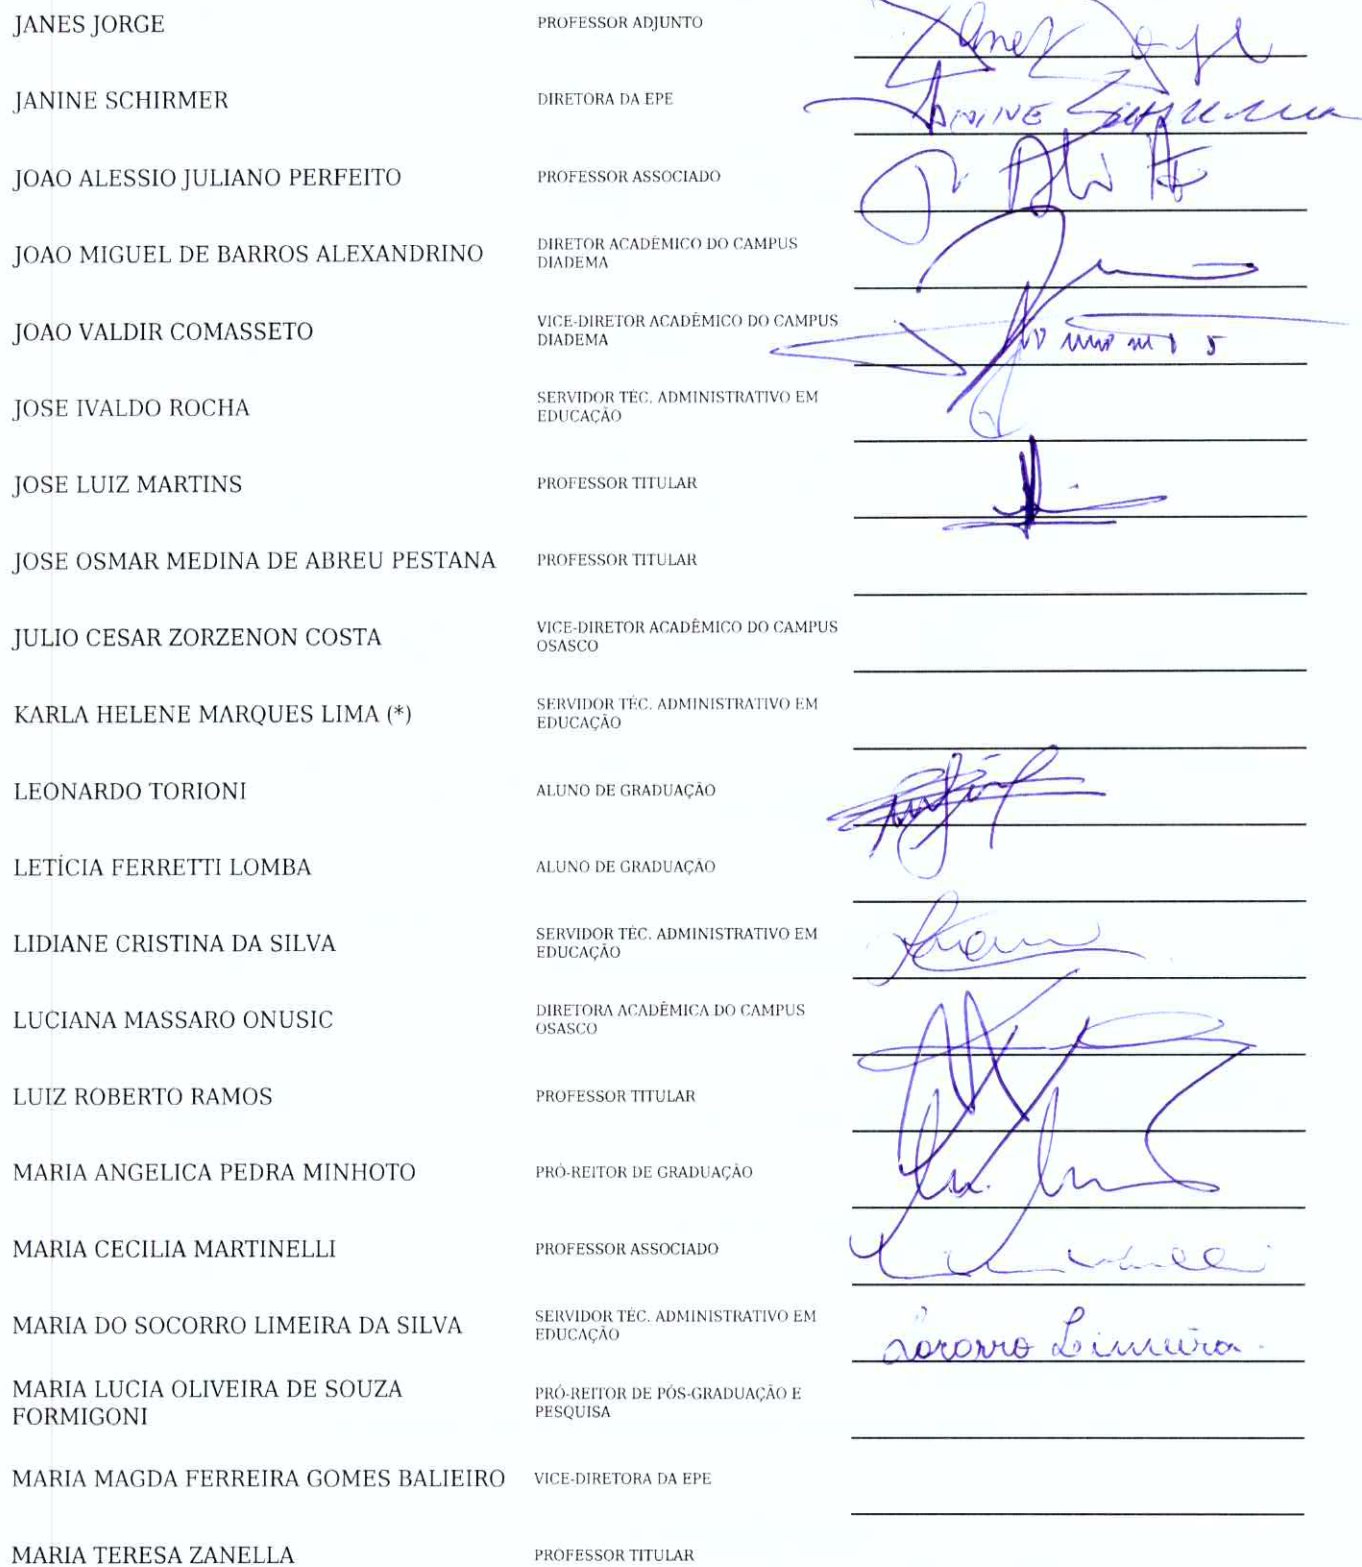 JANES JORGE PROFESSOR ADJUNTO Janes Jorge
JANINE SCHIRMER DIRETORA DA EPE JANINE Schirmer
JOAO ALESSIO JULIANO PERFEITO PROFESSOR ASSOCIADO
JOAO MIGUEL DE BARROS ALEXANDRINO DIRETOR ACADÊMICO DO CAMPUS
DIADEMA
JOAO VALDIR COMASSETO VICE-DIRETOR ACADÊMICO DO CAMPUS
DIADEMA
JOSE IVALDO ROCHA SERVIDOR TÉC. ADMINISTRATIVO EM
EDUCAÇÃO
JOSE LUIZ MARTINS PROFESSOR TITULAR
JOSE OSMAR MEDINA DE ABREU PESTANA PROFESSOR TITULAR
JULIO CESAR ZORZENON COSTA VICE-DIRETOR ACADÊMICO DO CAMPUS
OSASCO
KARLA HELENE MARQUES LIMA (*) SERVIDOR TÉC. ADMINISTRATIVO EM
EDUCAÇÃO
LEONARDO TORIONI ALUNO DE GRADUAÇÃO
LETÍCIA FERRETTI LOMBA ALUNO DE GRADUAÇÃO
LIDIANE CRISTINA DA SILVA SERVIDOR TÉC. ADMINISTRATIVO EM
EDUCAÇÃO
LUCIANA MASSARO ONUSIC DIRETORA ACADÊMICA DO CAMPUS
OSASCO
LUIZ ROBERTO RAMOS PROFESSOR TITULAR
MARIA ANGELICA PEDRA MINHOTO PRÓ-REITOR DE GRADUAÇÃO
MARIA CECILIA MARTINELLI PROFESSOR ASSOCIADO
MARIA DO SOCORRO LIMEIRA DA SILVA SERVIDOR TÉC. ADMINISTRATIVO EM
EDUCAÇÃO
Socorro Limeira.
MARIA LUCIA OLIVEIRA DE SOUZA PRÓ-REITOR DE PÓS-GRADUAÇÃO E
FORMIGONI PESQUISA
MARIA MAGDA FERREIRA GOMES BALIEIRO VICE-DIRETORA DA EPE
MARIA TERESA ZANELLA PROFESSOR TITULAR